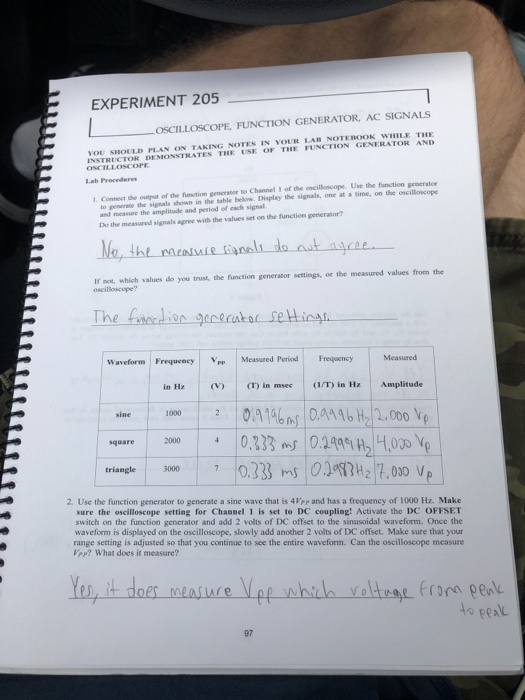 EXPERIMENT 205
OSCILLOSCOPE, FUNCTION GENERATOR, AC SIGNALS
YOU SHOULD PLAN ON TAKING NOTES IN YOUR LAB NOTEBOOK WHILE THE
INSTRUCTOR DEMONSTRATES THE USE OF THE FUNCTION GENERATOR AND
OSCILLOSCOPE
Lab Procedures
1. Connect the output of the function generator to Channel 1 of the oscilloscope. Use the function generator
to generate the signals shown in the table below. Display the signals, one at a time, on the oscilloscope
and measure the amplitude and period of each signal.
Do the measured signals agree with the values set on the function generator?
No, the measure signals do not agree.
If not, which values do you trust, the function generator settings, or the measured values from the
oscilloscope?
The function generator settings.
Waveform Frequency Vpp Measured Period Frequency Measured
in Hz (V) (T) in msec (1/T) in Hz Amplitude
sine 1000 2 0.9996 ms 0.9996 Hz 2.000 Vp
square 2000 4 0.333 ms 0.2999 Hz 4.000 Vp
triangle 3000 7 0.333 ms 0.2983 Hz 7.000 Vp
2. Use the function generator to generate a sine wave that is 4VPP and has a frequency of 1000 Hz. Make
sure the oscilloscope setting for Channel 1 is set to DC coupling! Activate the DC OFFSET
switch on the function generator and add 2 volts of DC offset to the sinusoidal waveform. Once the
waveform is displayed on the oscilloscope, slowly add another 2 volts of DC offset. Make sure that your
range setting is adjusted so that you continue to see the entire waveform. Can the oscilloscope measure
VPP? What does it measure?
Yes, it does measure Vpp which voltage from peak
to peak
97